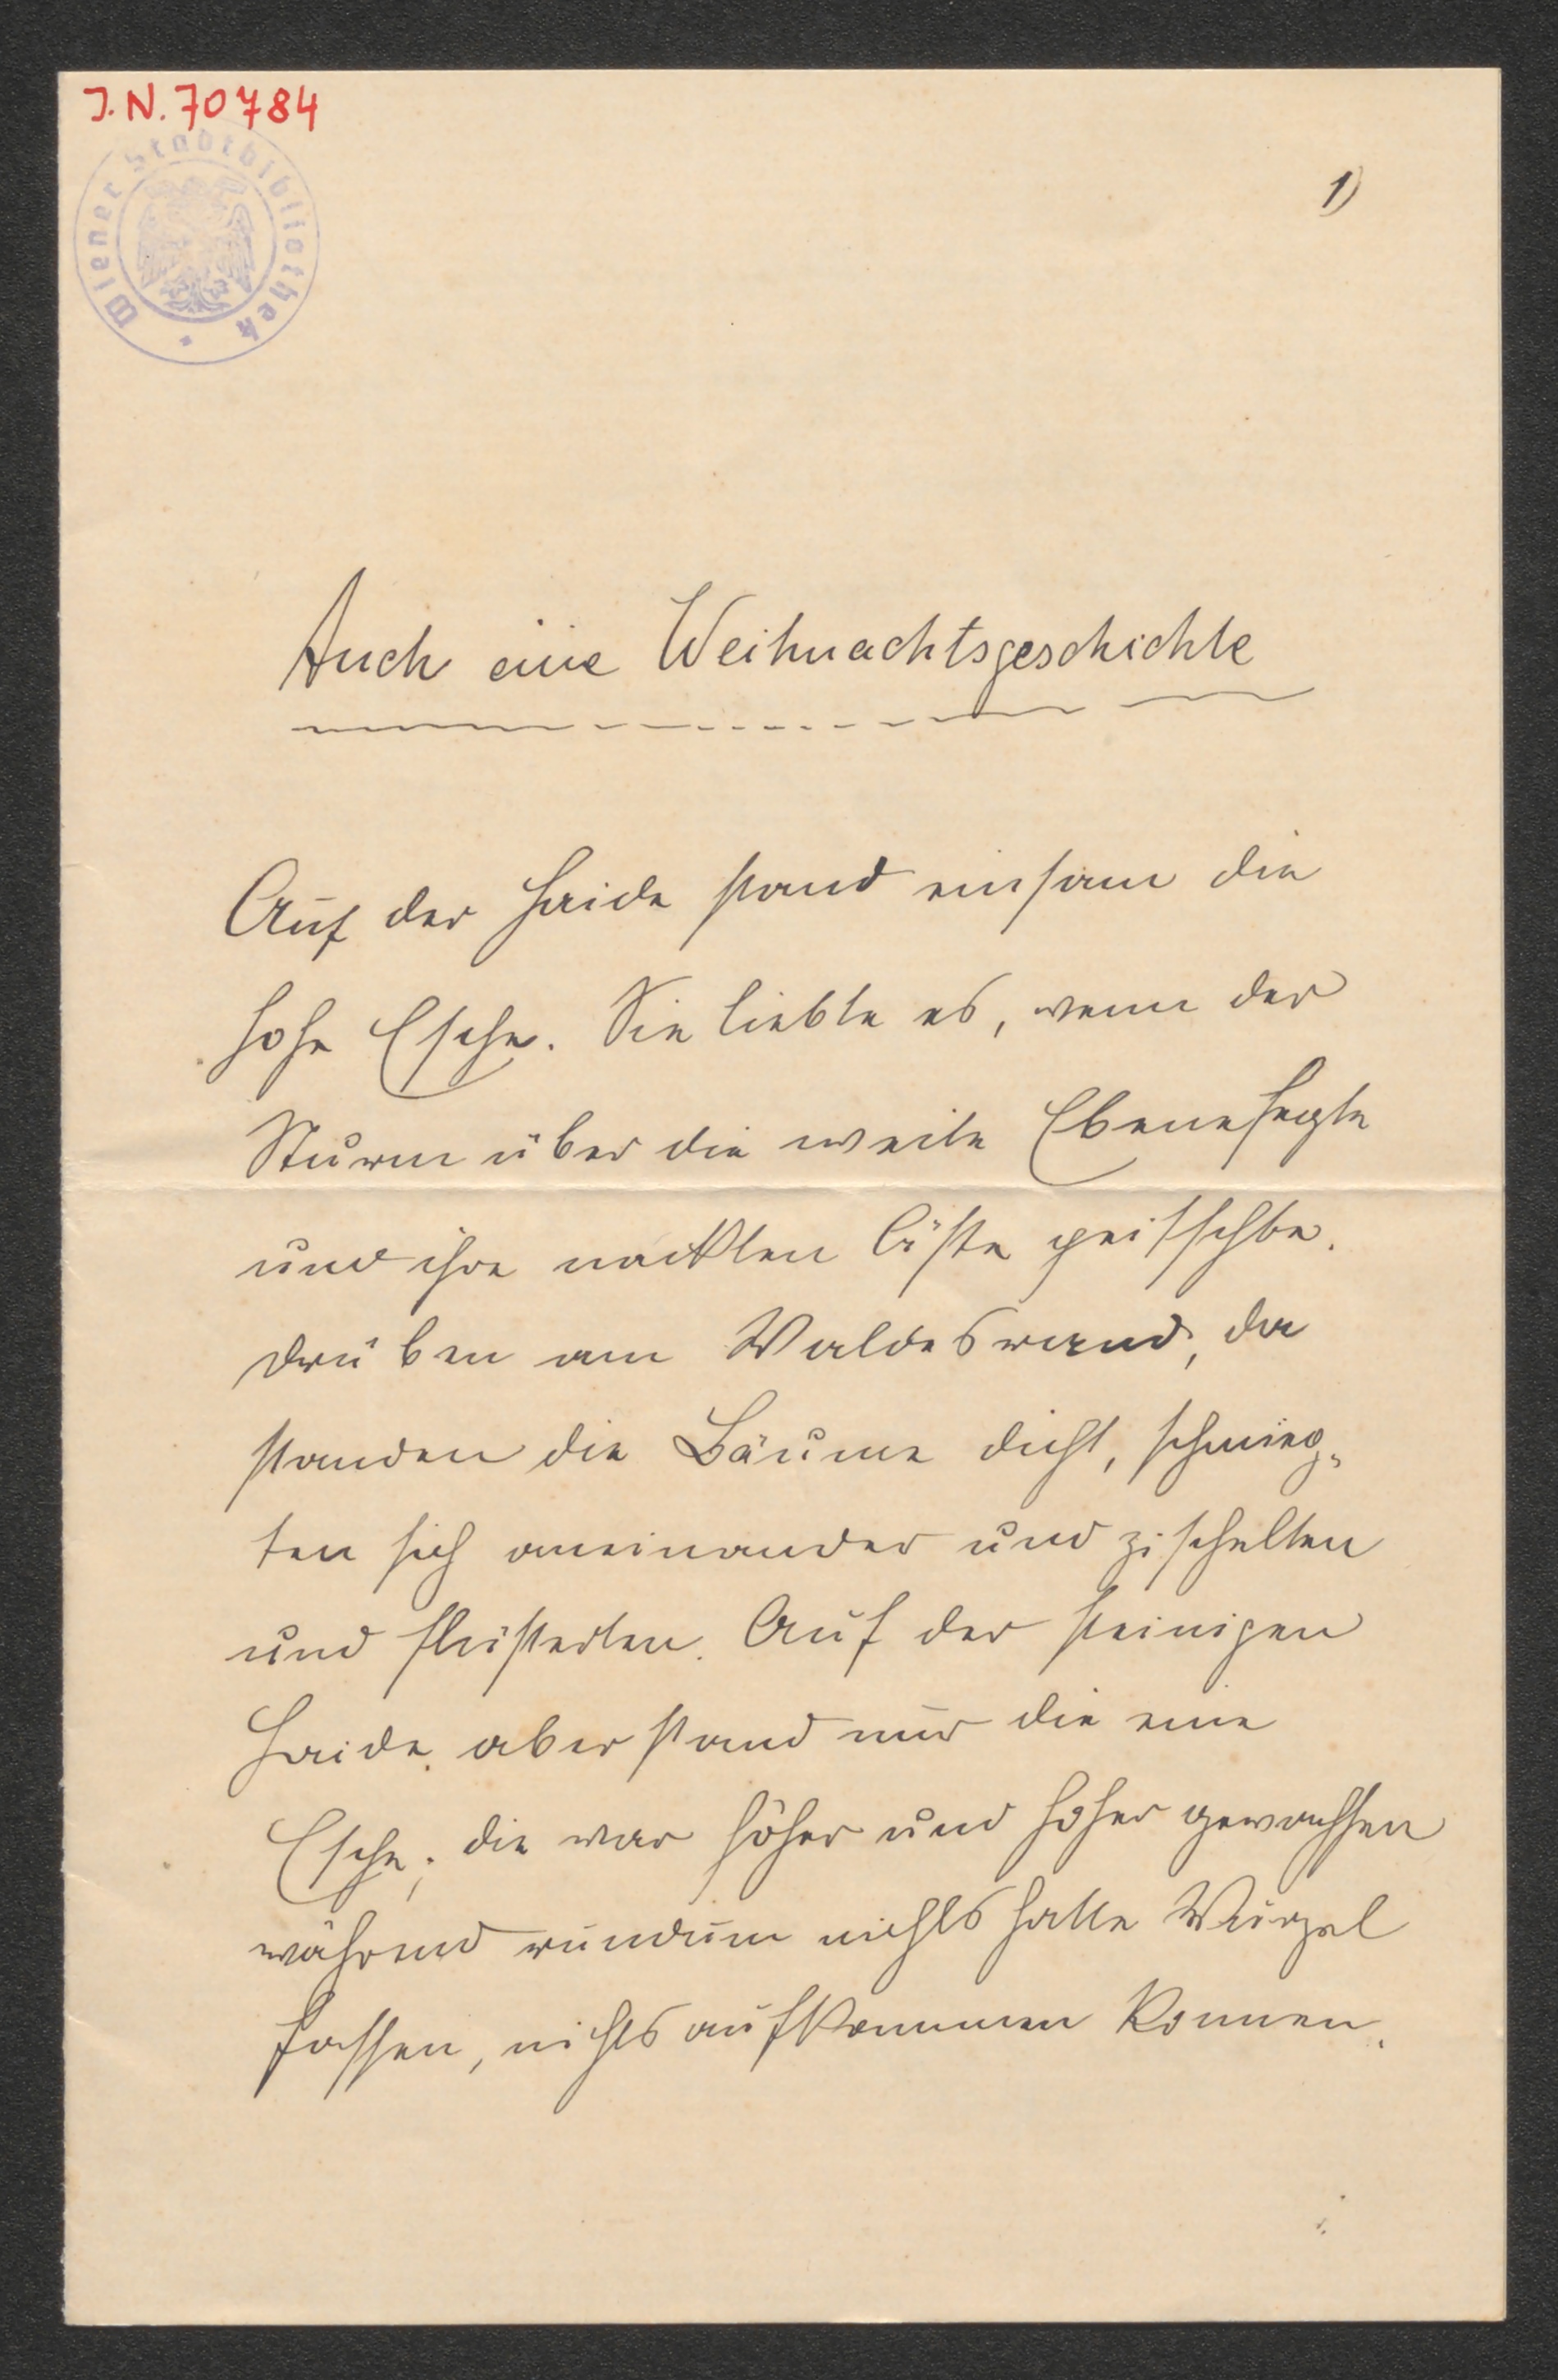 J.N. 70784
Wiener Stadtbibliothek
1)
Auch eine Weihnachtsgeschichte
Auf der Haide stand einsam die
hohe Esche. Sie liebte es, wenn der
Sturm über die weite Ebene fegte
und ihre nackten Äste peitschte.
Drüben am Waldesrand, da
standen die Bäume dicht, schmieg-
ten sich aneinander und zischelten
und flüsterten. Auf der steinigen
Haide aber stand nur die eine
Esche; die war höher und höher gewachsen
während rundum nichts hatte Wurzel
fassen, nichts aufkommen können.